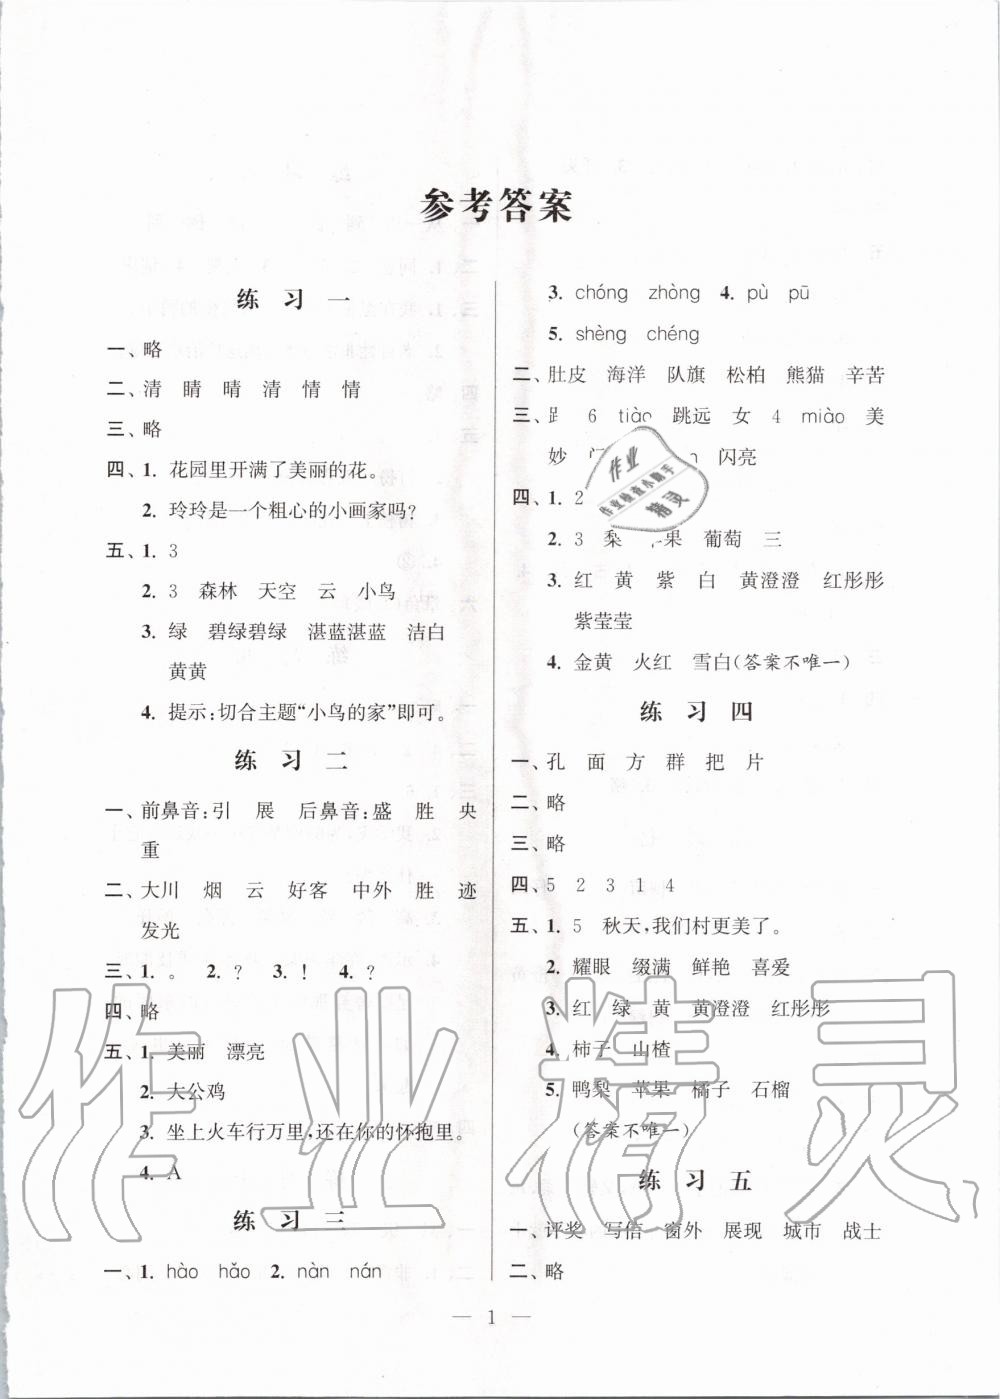 参考答案
练习一
一、略
二、清 睛 晴 清 情 情
三、略
四、1. 花园里开满了美丽的花。
2. 玲玲是一个粗心的小画家吗?
五、1. 3
2. 3 森林 天空 云 小鸟
3. 绿 碧绿碧绿 湛蓝湛蓝 洁白
黄黄
4. 提示:切合主题“小鸟的家”即可。
练习二
一、前鼻音:引 展 后鼻音:盛 胜 央
重
二、大川 烟 云 好客 中外 胜 迹
发光
三、1. 。 2. ? 3. ! 4. ?
四、略
五、1. 美丽 漂亮
2. 大公鸡
3. 坐上火车行万里,还在你的怀抱里。
4. A
练习三
一、1. hào hǎo 2. nàn nán
3. chóng zhòng 4. pù pū
5. shèng chéng
二、肚皮 海洋 队旗 松柏 熊猫 辛苦
三、 6 tiào 跳远 女 4 miào 美
妙 闪亮
四、1. 2
2. 3 梨 苹果 葡萄 三
3. 红 黄 紫 白 黄澄澄 红彤彤
紫莹莹
4. 金黄 火红 雪白(答案不唯一)
练习四
一、孔 面 方 群 把 片
二、略
三、略
四、5 2 3 1 4
五、1. 5 秋天,我们村更美了。
2. 耀眼 缀满 鲜艳 喜爱
3. 红 绿 黄 黄澄澄 红彤彤
4. 柿子 山楂
5. 鸭梨 苹果 橘子 石榴
(答案不唯一)
练习五
一、评奖 写信 窗外 展现 城市 战士
二、略
— 1 —
作业精灵
作业
作业检查小助手
精灵